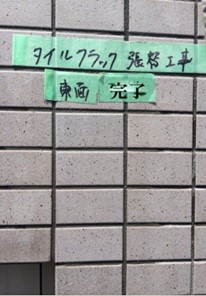 タイルクラック 張替工事
東面 完了